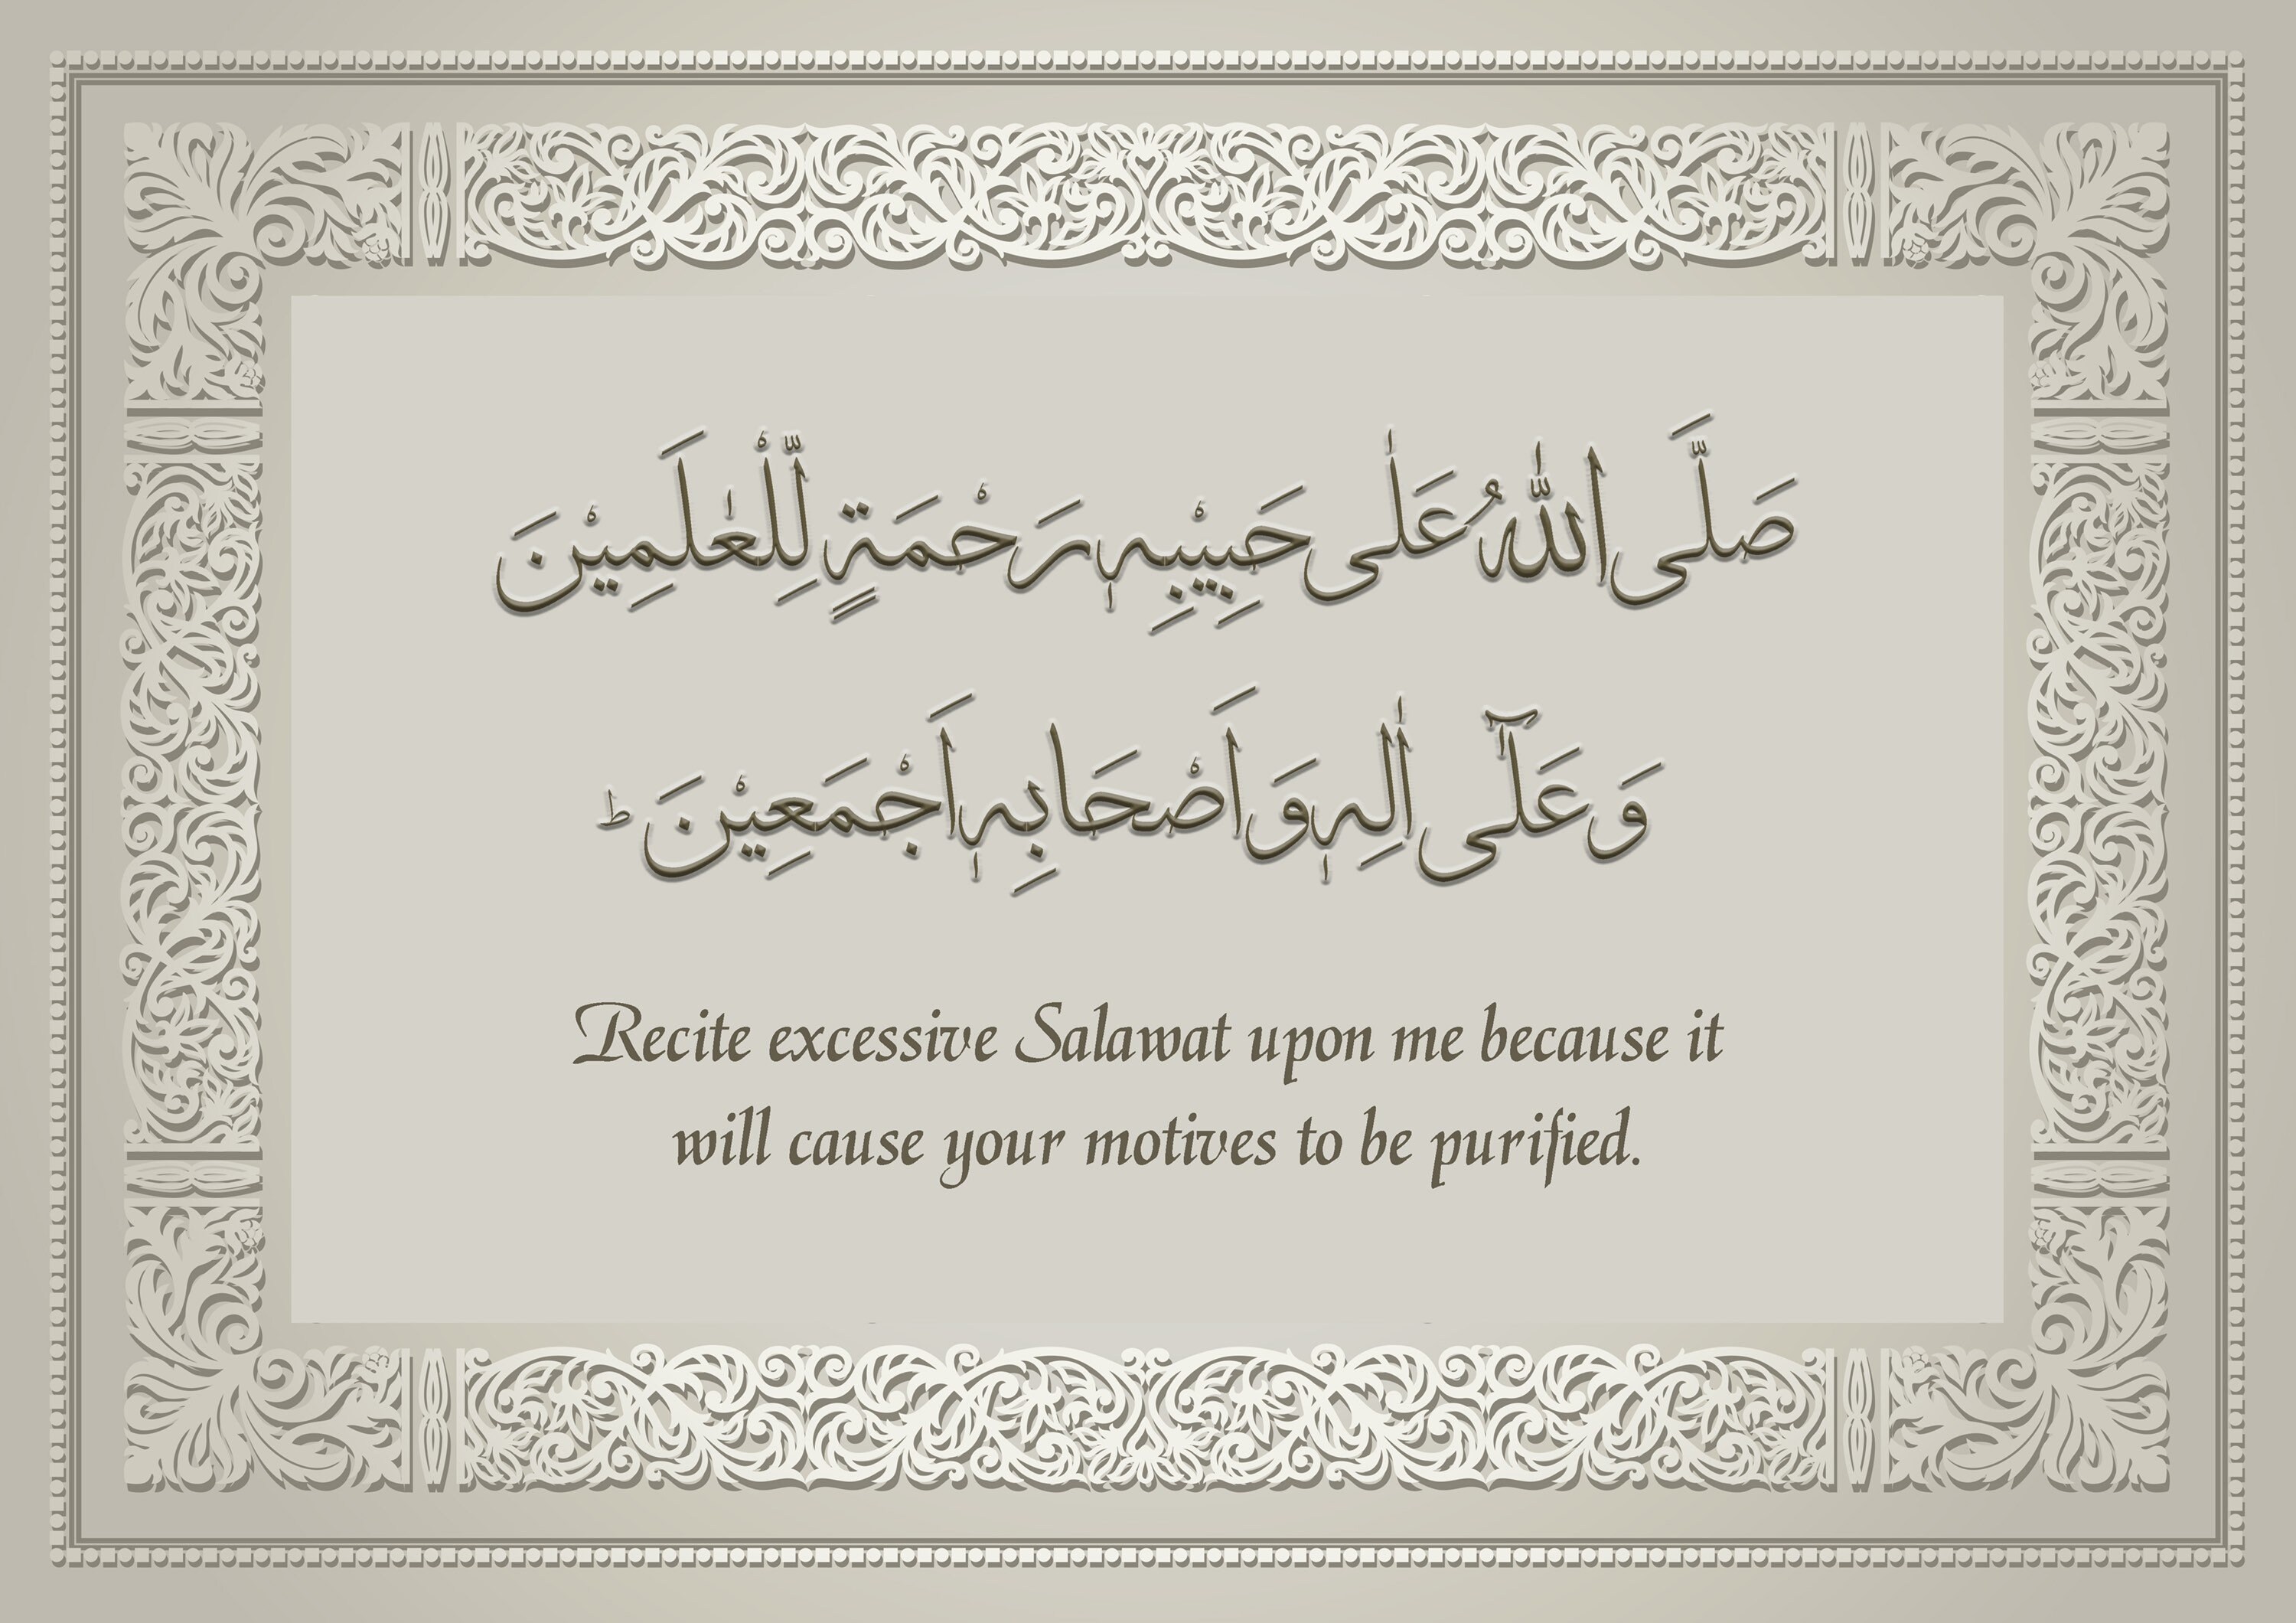 صَلَّی اللّٰہُ عَلٰی حَبِیْبِہٖ رَحْمَۃٍ لِّلْعٰلَمِیْنَ
وَعَلٰٓی اٰلِہٖ وَاَصْحَابِہٖ اَجْمَعِیْنَ ؕ
Recite excessive Salawat upon me because it
will cause your motives to be purified.